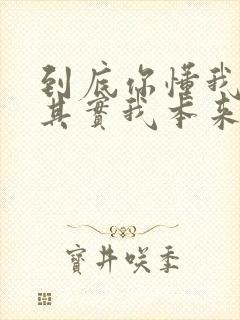 到底你懂我
其實我本来
寶井咲季